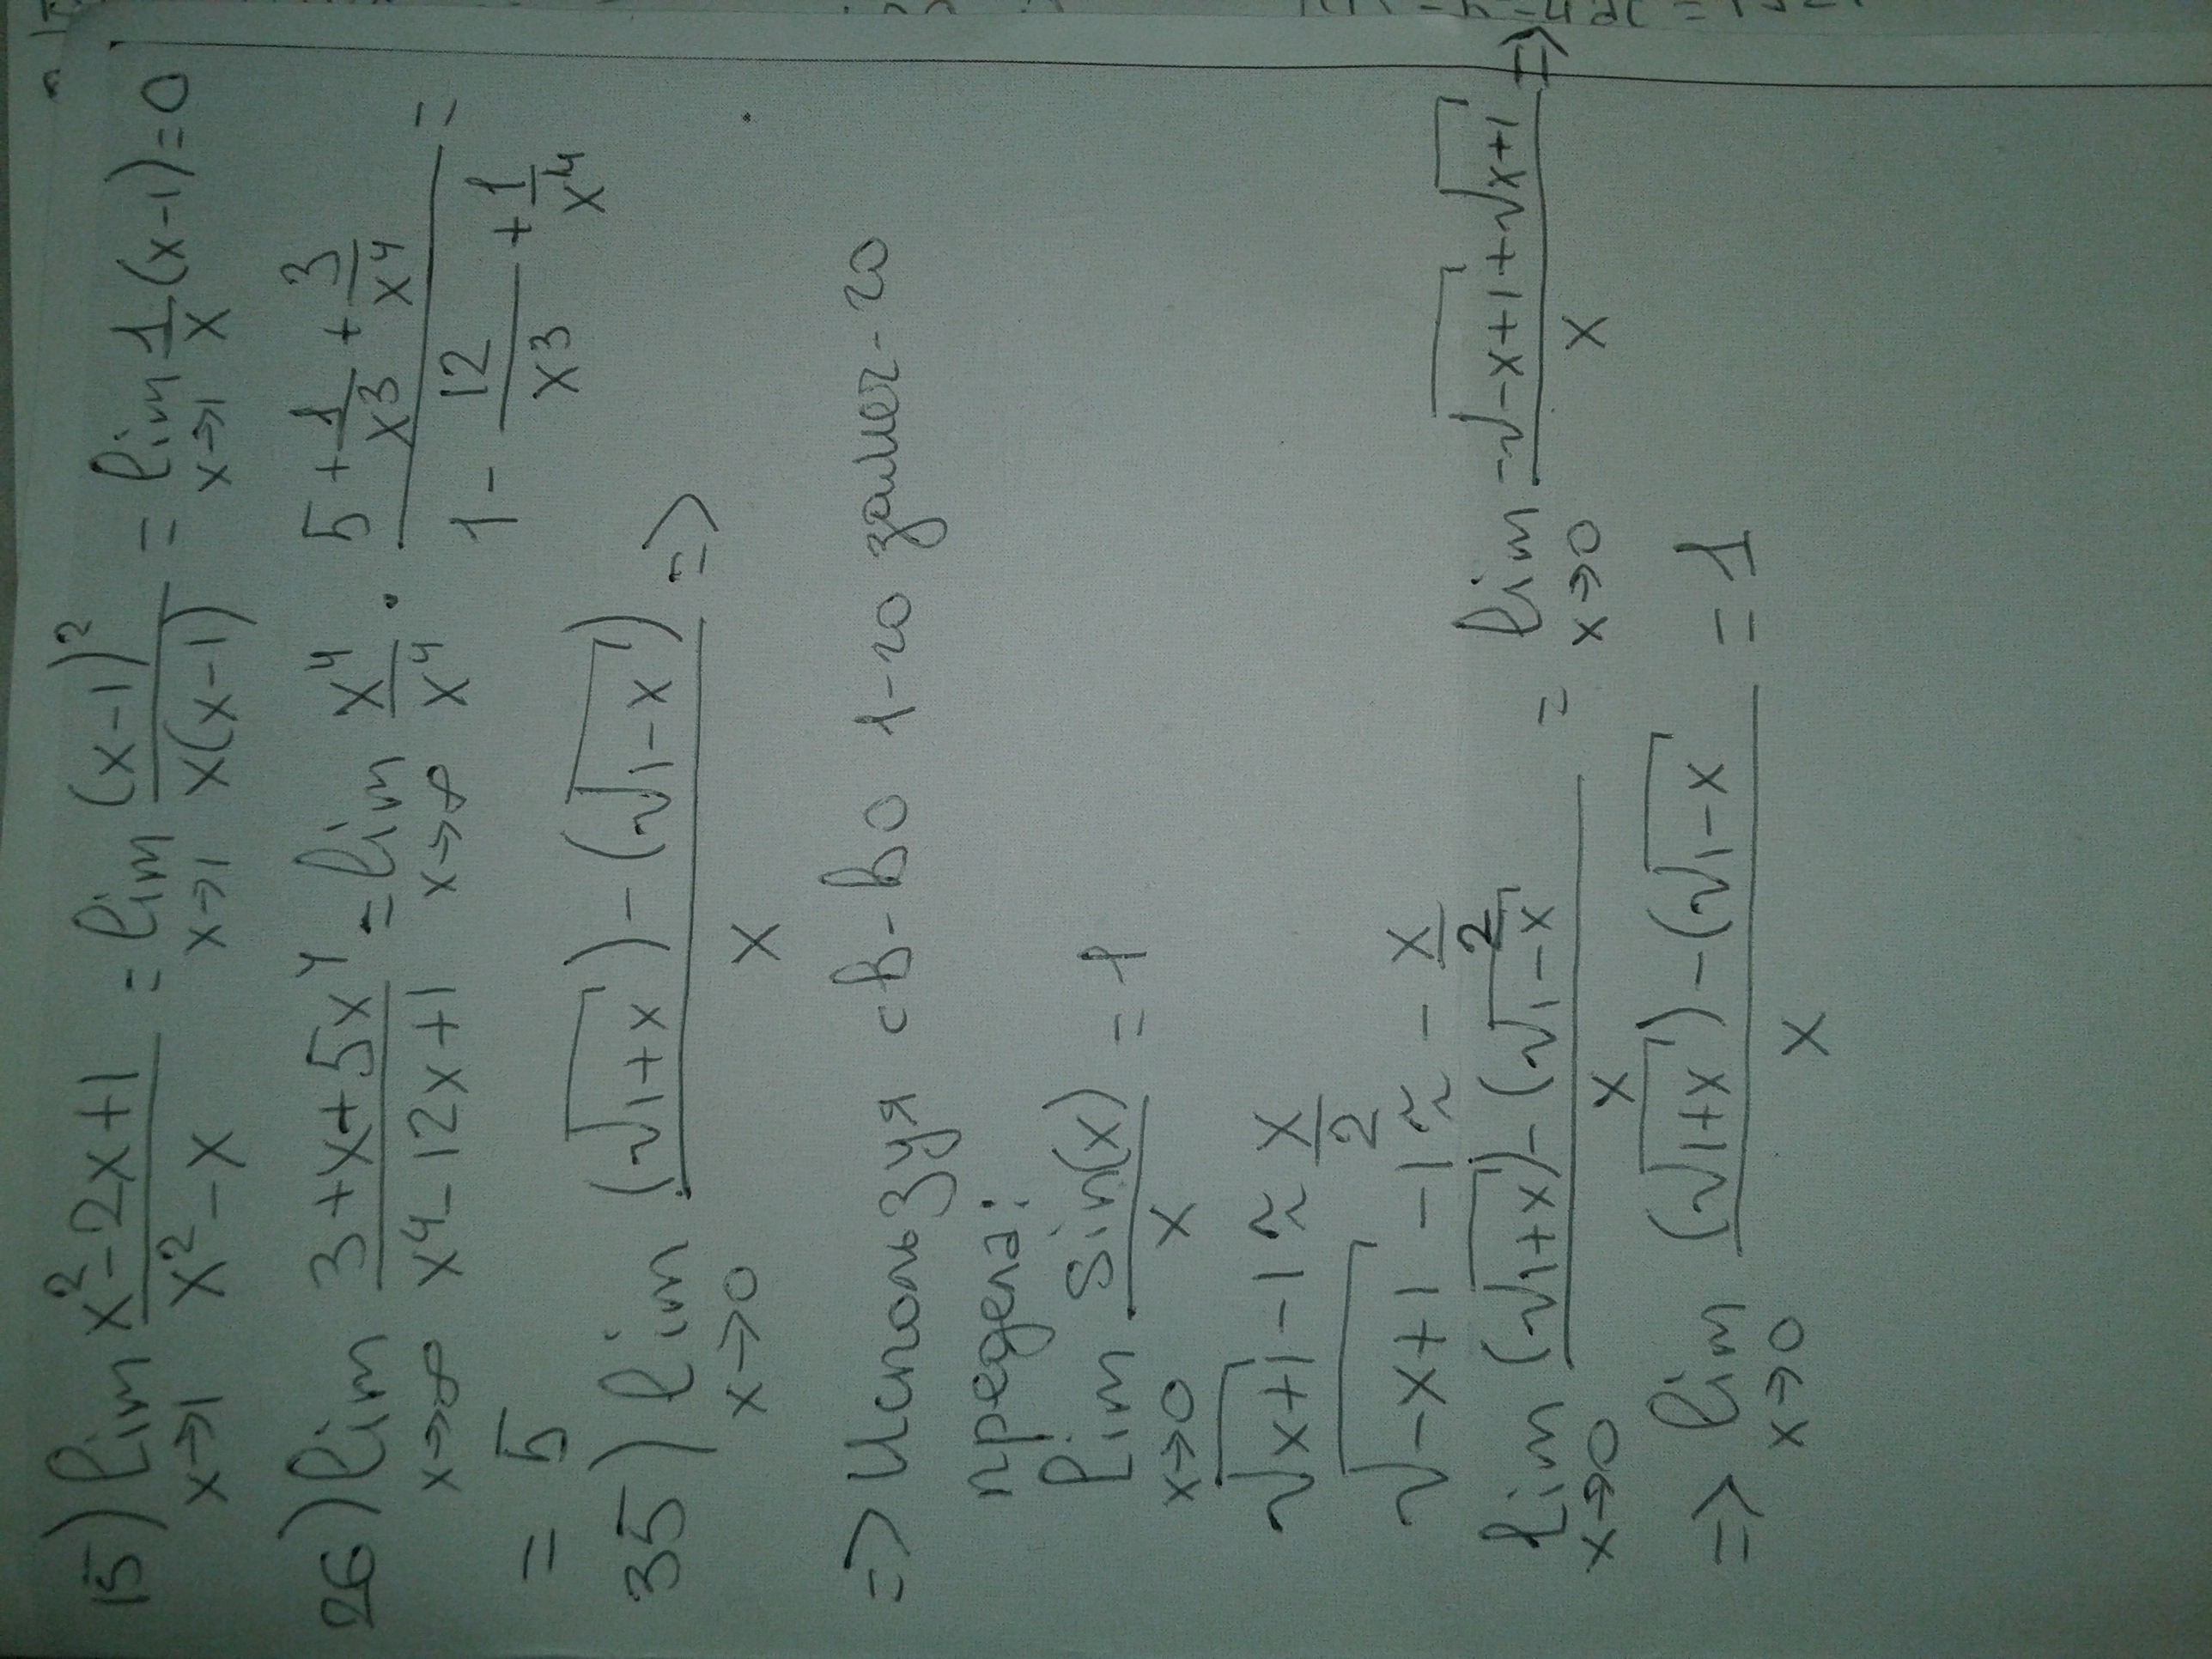 15) lim x→1 (x² - 2x + 1)/(x² - x) = lim x→1 (x-1)²/(x(x-1)) = lim x→1 1/x (x-1) = 0
26) lim x→∞ (3+x+5x⁴)/(x⁴-12x+1) = lim x→∞ x⁴/x⁴ · (5 + 1/x³ + 3/x⁴)/(1 - 12/x³ + 1/x⁴) =
= 5
35) lim x→0 ((√1+x) - (√1-x))/x =>
=> Используя св-во 1-го замеч-го
предела:
lim x→0 sin(x)/x = 1
√x+1 - 1 ≈ x/2
√-x+1 - 1 ≈ - x/2
lim x→0 ((√1+x) - (√1-x))/x = lim x→0 (-√-x+1 + √x+1)/x =>
=> lim x→0 ((√1+x) - (√1-x)/x = 1